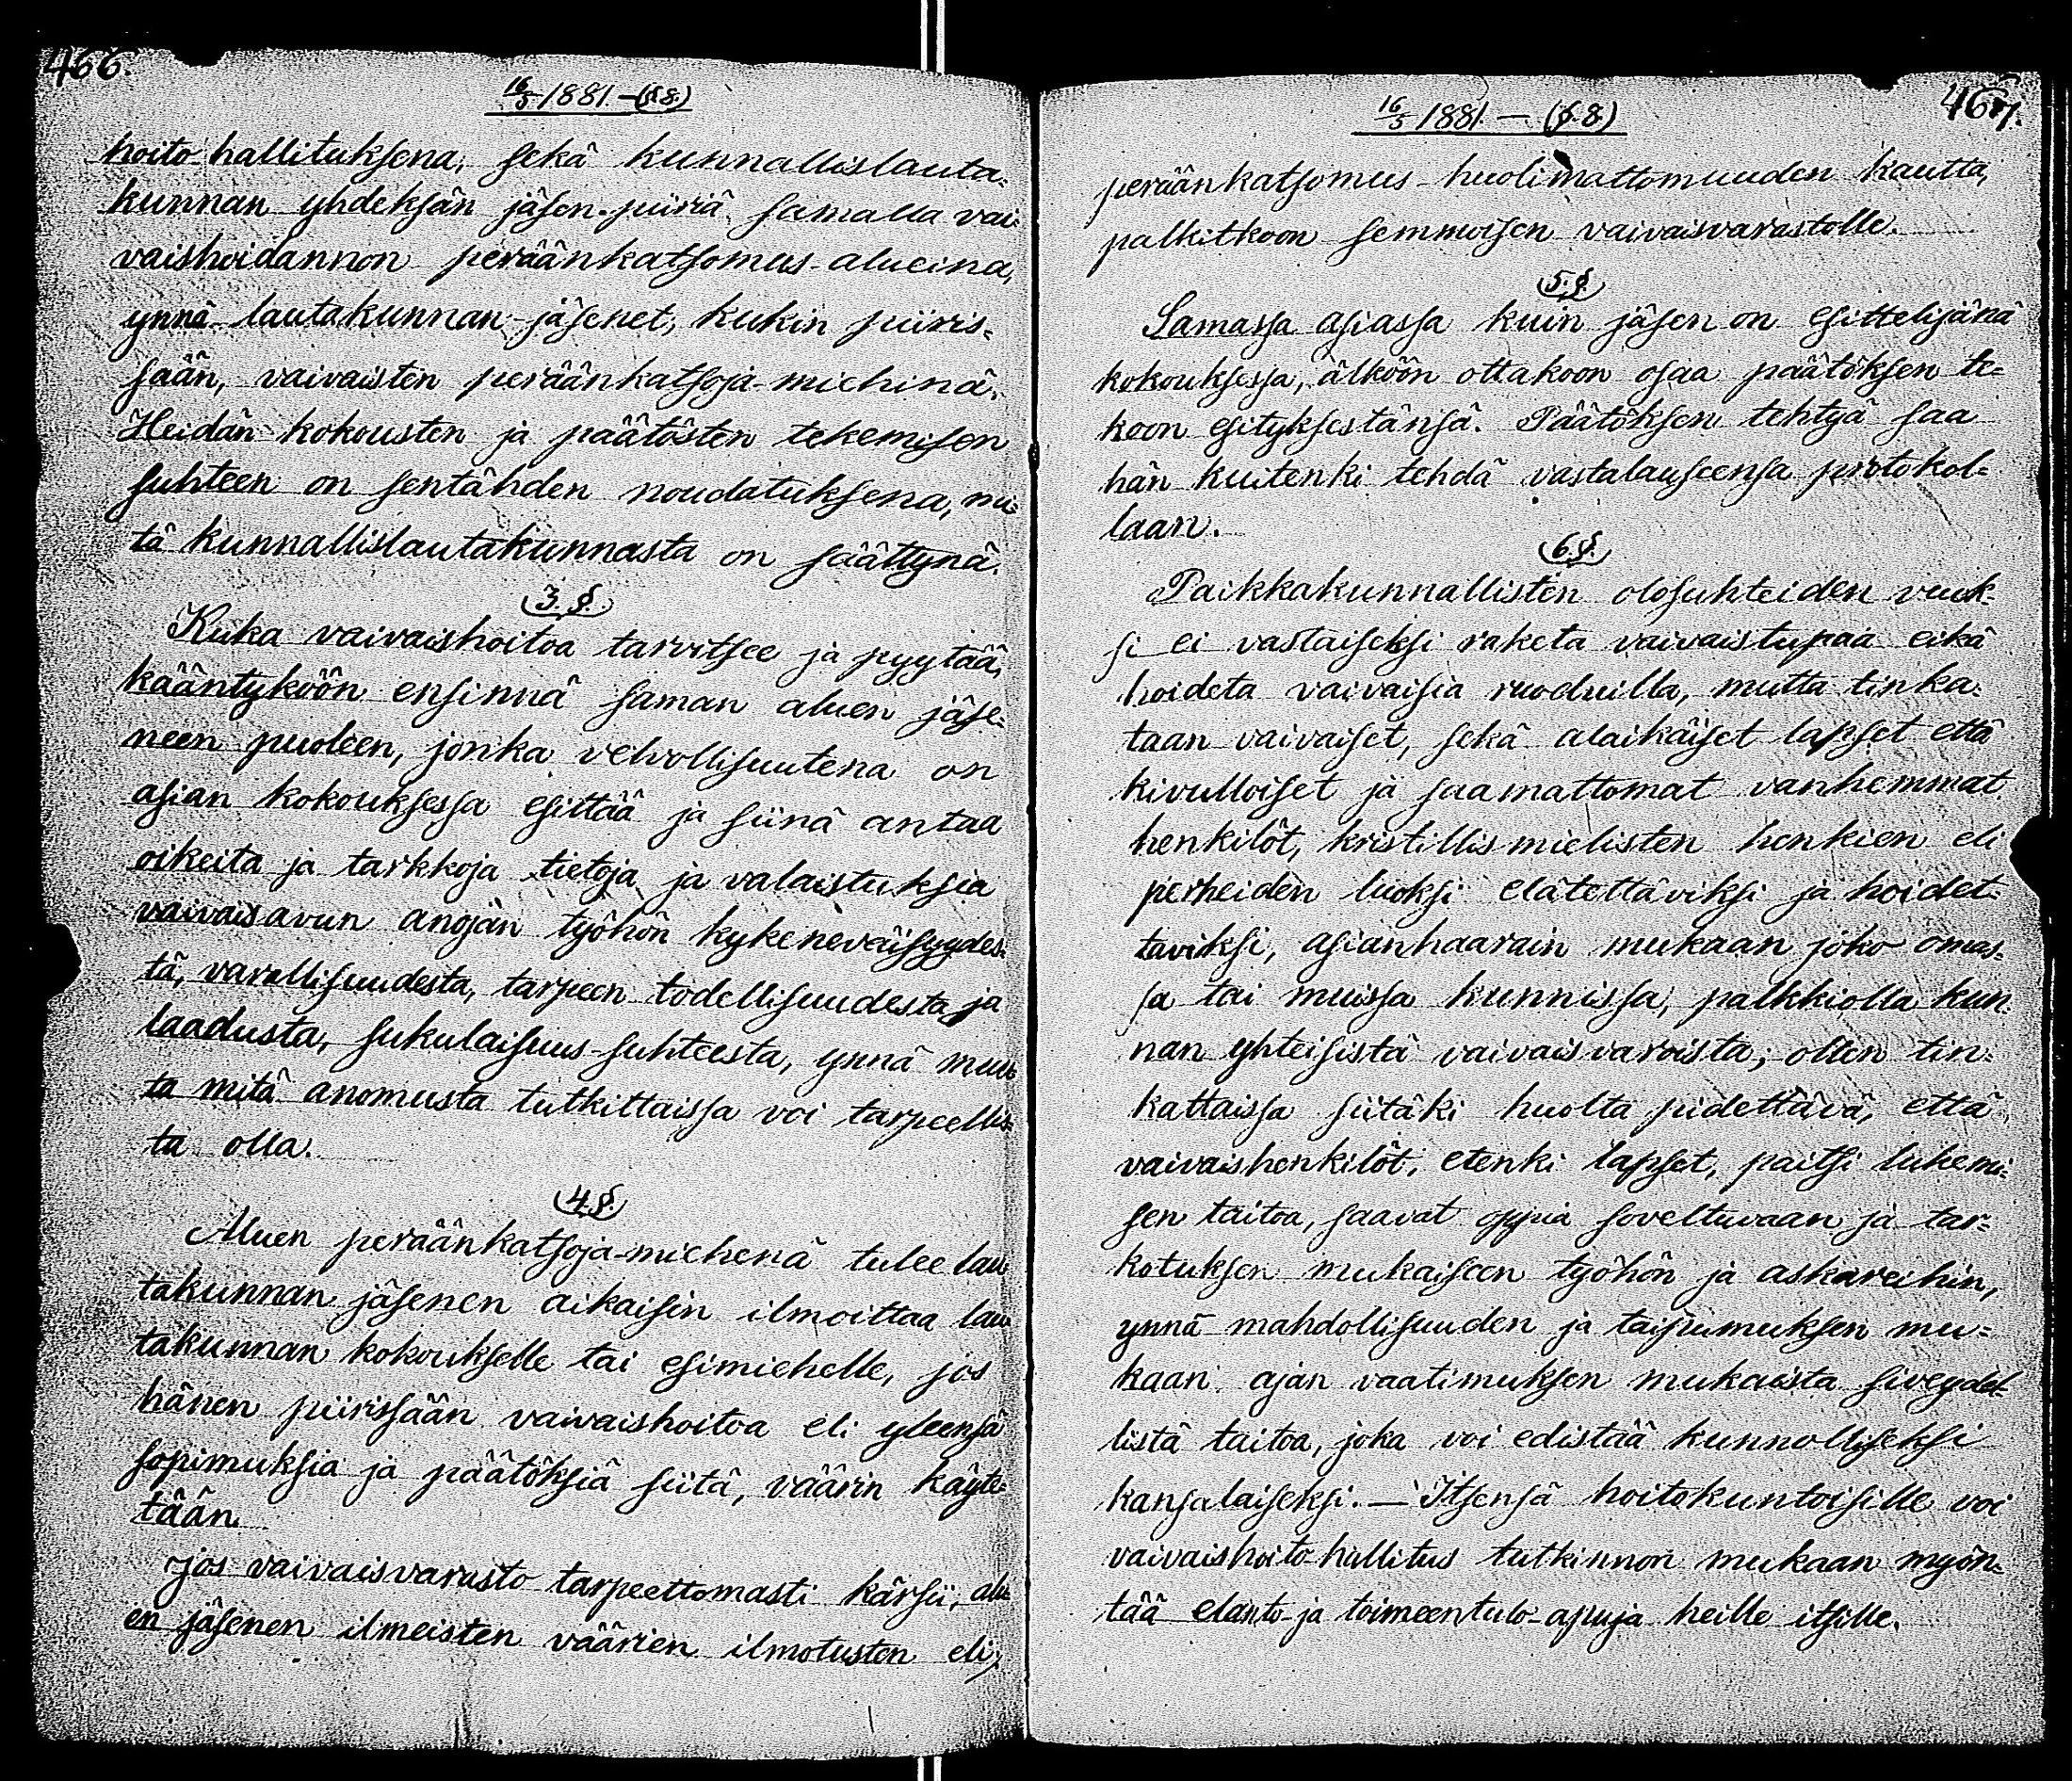 466.
16/5 1881. – (§ 8.)
hoito hallituksena, sekä kunnallislauta-
kunnan yhdeksän jäsen-piiriä samalla vai-
vaishoidannon peräänkatsomus-alueina,
ynnä lautakunnan jäsenet, kukin piiris-
sään, vaivaisten peräänkatsoja-miehinä.
Heidän kokousten ja päätösten tekemisen
suhteen on sentähden noudatuksena, mi-
tä kunnallislautakunnasta on säättynä.
3. §.
Kuka vaivaishoitoa tarvitsee ja pyytää,
kääntyköön ensinnä saman aluen jäse-
neen puoleen, jonka velvollisuutena on
asian kokouksessa esittää ja siinä antaa
oikeita ja tarkkoja tietoja ja valaistuksia
vaivaisavun anojan työhön kykeneväisyydes-
tä, varallisuudesta, tarpeen todellisuudesta ja
laadusta, sukulaisuus-suhteesta, ynnä muu-
ta mitä anomusta tutkittaissa voi tarpeellis-
ta olla.
4. §.
Aluen peräänkatsoja-miehenä tulee lau-
takunnan jäsenen aikaisin ilmoittaa lau-
takunnan kokoukselle tai esimiehelle, jos
hänen piirissään vaivaishoitoa eli yleensä
sopimuksia ja päätöksiä siitä, väärin käyte-
tään.
Jos vaivaisvarasto tarpeettomasti kärsii, alu-
en jäsenen ilmeisten väärien ilmotusten eli
467.
16/5 1881. – (§. 8.)
peräänkatsomus-huolimattomuuden kautta,
palkitkoon semmoisen vaivaisvarastolle.
5. §.
Samassa asiassa kuin jäsen on esittelijänä
kokouksessa, älköön ottakoon osaa päätöksen te-
koon esityksestänsä. Päätöksen tehtyä saa
hän kuitenki tehdä vastalauseensa protokol-
laan.
6. §.
Paikkakunnallisten olosuhteiden vuok-
si ei vastaiseksi raketa vaivaistupaa eikä
hoideta vaivaisia ruoduilla, mutta tinka-
taan vaivaiset, sekä alaikäiset lapset että
kivulloiset ja saamattomat vanhemmat
henkilöt, kristillismielisten henkien eli
perheiden luoksi elätettäviksi ja hoidet-
taviksi, asianhaarain mukaan joko omas-
sa tai muissa kunnissa, palkkiolla kun-
nan yhteisistä vaivaisvaroista; ollen tin-
kattaissa siitäki huolta pidettävä, että
vaivaishenkilöt, etenki lapset, paitsi lukemi-
sen taitoa, saavat oppia soveltuvaan ja tar-
kotuksen mukaiseen työhön ja askareihin,
ynnä mahdollisuuden ja taipumuksen mu-
kaan ajan vaatimuksen mukaista siveydel-
listä taitoa, joka voi edistää kunnolliseksi
kansalaiseksi. – Itsensä hoitokuntoisille voi
vaivaishoito-hallitus tutkinnon mukaan myön-
tää elanto- ja toimeentulo-apuja heille itsille.